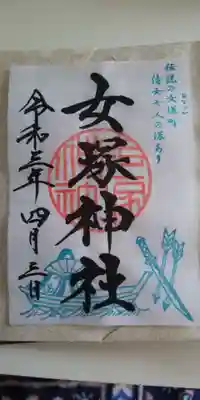 伝説の女塚
侍女十人の塚あり
女塚神社
令和三年 四月三日